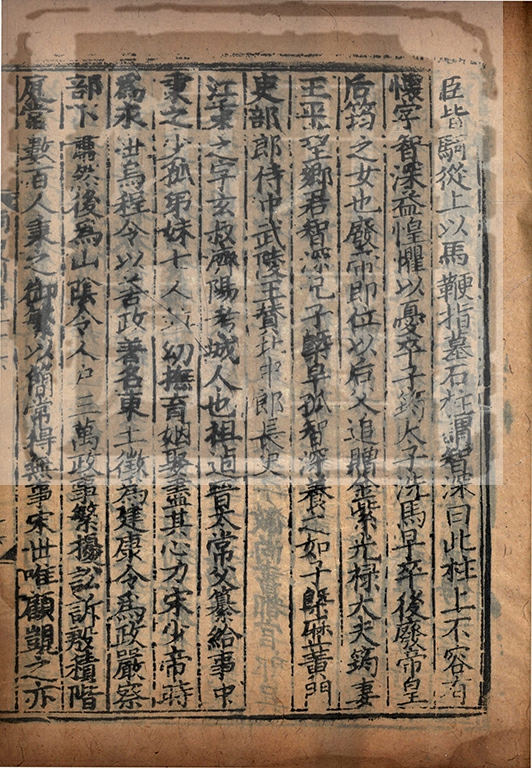 臣皆騎從上以馬鞭指墓石柱謂智深曰此柱上不容有
懷字智深益惶懼以憂卒子筠太子洗馬早卒後廢帝皇
后筠之女也廢帝即位以后父追贈金紫光祿大夫筠妻
王平望鄉君智深兄子槩早孤智深養之如子槩歷黃門
吏部郎侍中武陵王贊北中郎長史
江秉之字玄叔濟陽考城人也祖逌晉太常父纂給事中
秉之少孤弟妹七人並幼撫育姻娶盡其心力宋少帝時
為永世烏程令以善政著名東土徵為建康令為政嚴察
部下肅然後為山陰令人戶三萬政事繁擾訟訴殷積階
庭常數百人秉之御繁以簡常得無事宋世唯顧覬之亦